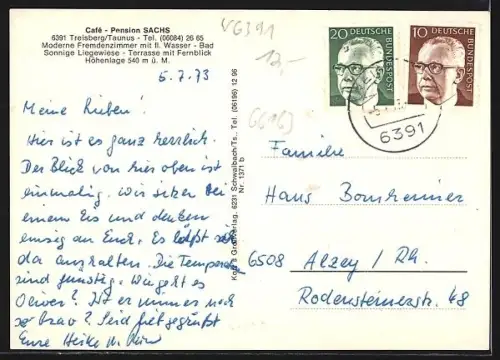 Café - Pension SACHS
6391 Treisberg/Taunus - Tel. (06084) 26 65
Moderne Fremdenzimmer mit fl. Wasser - Bad
Sonnige Liegewiese - Terrasse mit Fernblick
Höhenlage 540 m ü. M.
V6391
12,-
66163
5.7.73
Meine Lieben!
Hier ist es ganz herrlich.
Der Blick von hier oben ist
einmalig. Wir sitzen bei
einem Eis und denken
emsig an Euch. Es läßt sich
da aushalten. Die Temperaturen
sind günstig. Wie geht es
Oliver? Ist er immer noch
so brav? Seid fest gegrüßt
Eure Heike
Nr. 1371 b
6231 Schwalbach/Ts., Tel. (06196) 12 96
20 DEUTSCHE BUNDESPOST
10 DEUTSCHE BUNDESPOST
6391
Familie
Hans Bornheimer
6508 Alzey / Rh.
Rodensteinerstr. 48